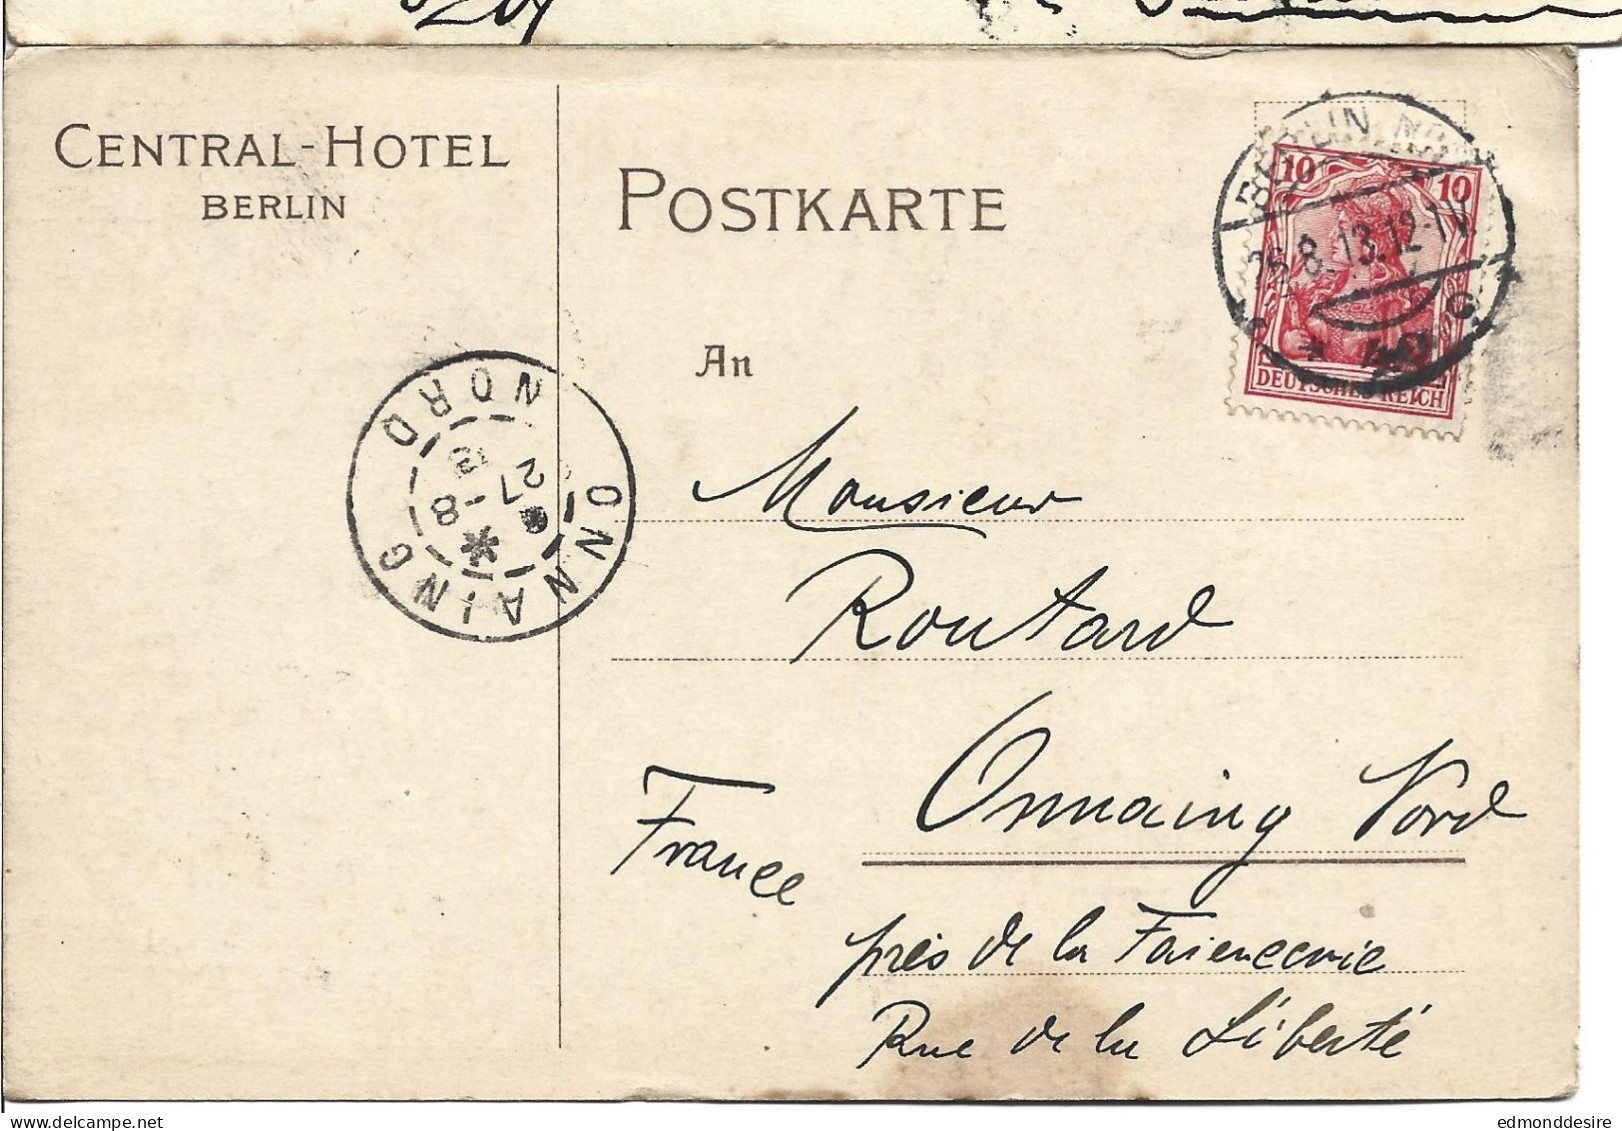 CENTRAL-HOTEL
BERLIN
POSTKARTE
An
BERLIN NW
26.8.13.12-1V.
* 40 c
10 10
DEUTSCHES REICH
ONNAING NORD
27-8
13
Monsieur
Routard
Onnaing Nord
France
près de la Faiencerie
Rue de la Liberté
edmonddesire